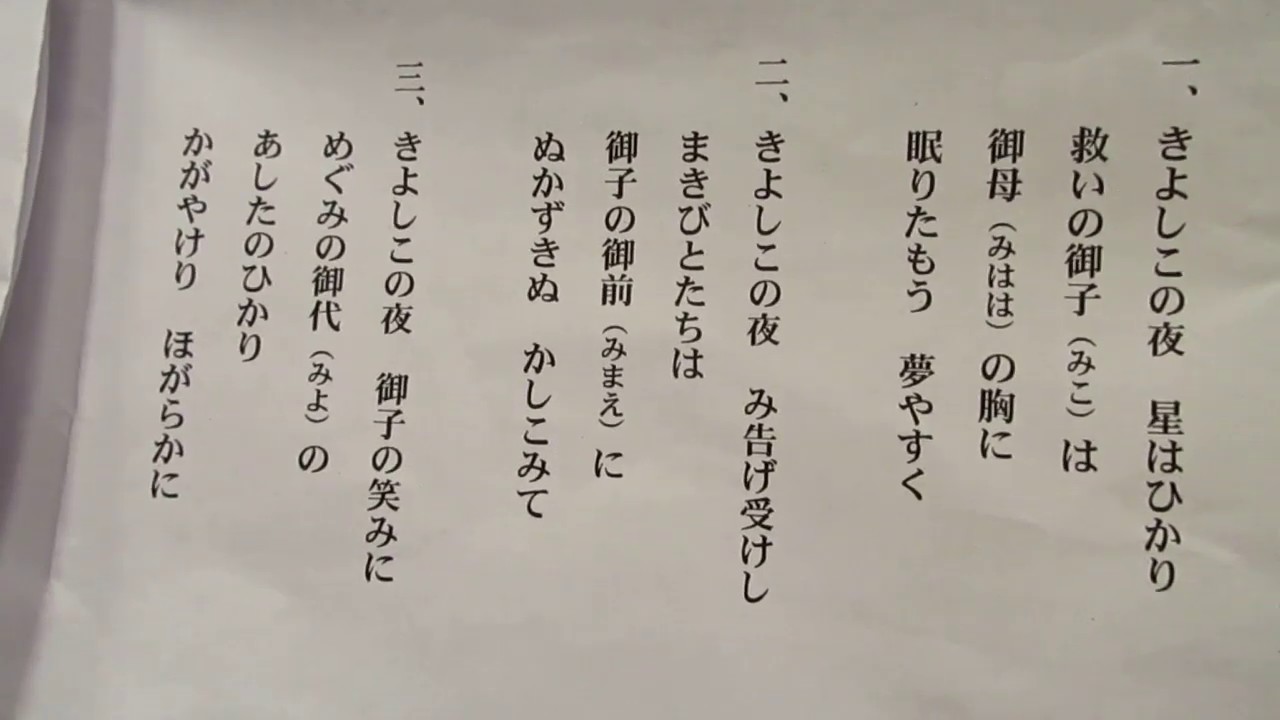 一、きよしこの夜　星はひかり
救いの御子（みこ）は
御母（みはは）の胸に
眠りたもう　夢やすく
二、きよしこの夜　み告げ受けし
まきびとたちは
御子の御前（みまえ）に
ぬかずきぬ　かしこみて
三、きよしこの夜　御子の笑みに
めぐみの御代（みよ）の
あしたのひかり
かがやけり　ほがらかに